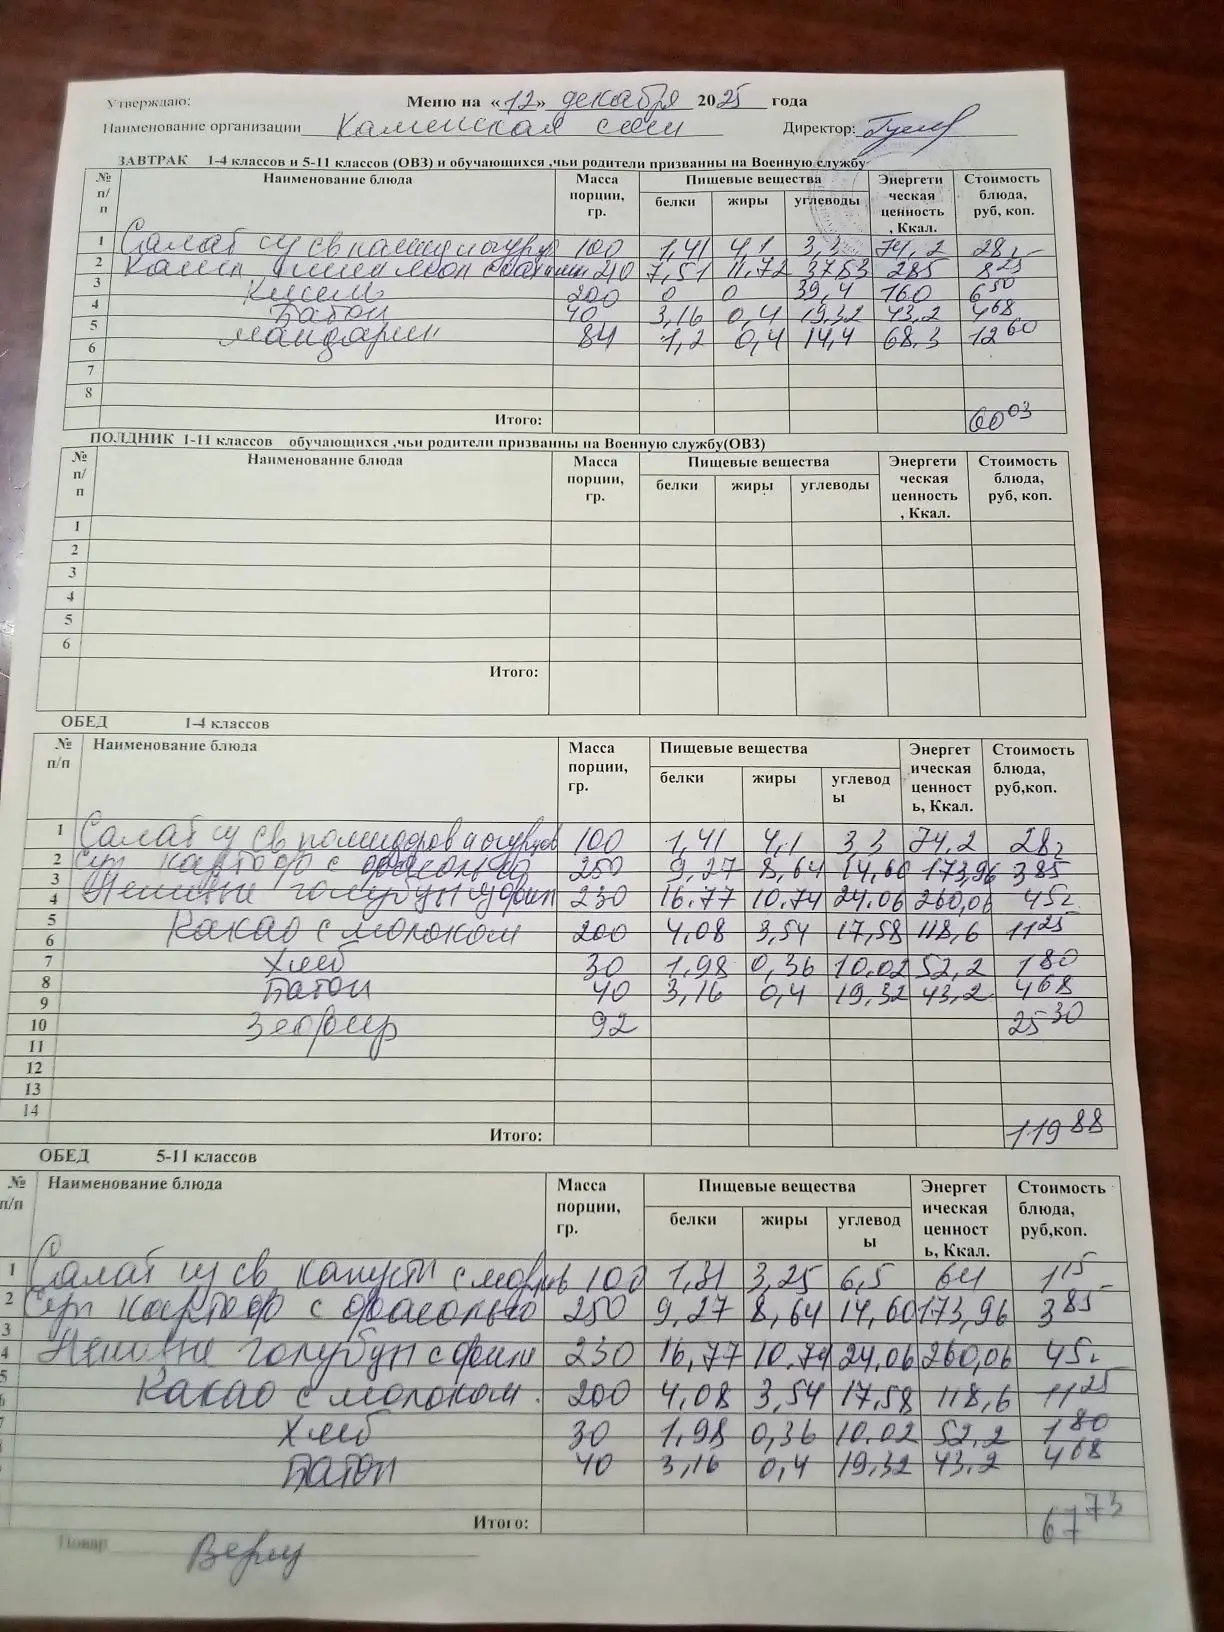 Утверждаю: Меню на «12» декабря 2025 года
Наименование организации Каменская сош Директор:
ЗАВТРАК 1-4 классов и 5-11 классов (ОВЗ) и обучающихся ,чьи родители призванны на Военную службу
№ п/п Наименование блюда Масса порции, гр. Пищевые вещества Энергетическая ценность, Ккал. Стоимость блюда, руб, коп.
белки жиры углеводы
1 Салат из св помид и огурц 100 1,41 4,1 3,3 74,2 28,-
2 210 7,51 11,72 37,53 285 8 25
3 Кисель 200 0 0 39,4 160 6 50
4 Батон 40 3,16 0,4 19,32 43,2 4 68
5 мандарин 84 1,2 0,4 14,4 68,3 12 60
6
7
8
Итого: 60 03
ПОЛДНИК 1-11 классов обучающихся ,чьи родители призванны на Военную службу(ОВЗ)
№ п/п Наименование блюда Масса порции, гр. Пищевые вещества Энергетическая ценность, Ккал. Стоимость блюда, руб, коп.
белки жиры углеводы
1
2
3
4
5
6
Итого:
ОБЕД 1-4 классов
№ п/п Наименование блюда Масса порции, гр. Пищевые вещества Энергетическая ценность, Ккал. Стоимость блюда, руб,коп.
белки жиры углеводы
1 Салат из св помидоров и огурцов 100 1,41 4,1 3,3 74,2 28
2 Суп картоф с фасолью 250 9,27 8,64 14,60 173,96 3 85
3
4 Ленивые голубцы 230 16.77 10.74 24.06 260,06 45
5 Какао с молоком 200 4,08 3,54 17,58 118,6 11 25
6
7 Хлеб 30 1,98 0,36 10.02 52,2 1 80
8 Батон 40 3,16 0,4 19,32 43,2 4 68
9
10 Зефир 92 25 30
11
12
13
14
Итого: 119 88
ОБЕД 5-11 классов
№ п/п Наименование блюда Масса порции, гр. Пищевые вещества Энергетическая ценность, Ккал. Стоимость блюда, руб,коп.
белки жиры углеводы
1 Салат из св капусты с морков 100 1,31 3,25 6,5 64 1 15
2 Суп картоф с фасолью 250 9,27 8,64 14,60 173,96 3 85
3
4 Ленивые голубцы 230 16,77 10.74 24.06 260,06 45
5 Какао с молоком 200 4,08 3,54 17,58 118,6 11 25
Хлеб 30 1,98 0,36 10.02 52,2 1 80
Батон 40 3,16 0,4 19,32 43,2 4 68
Итого: 67 73
Повар